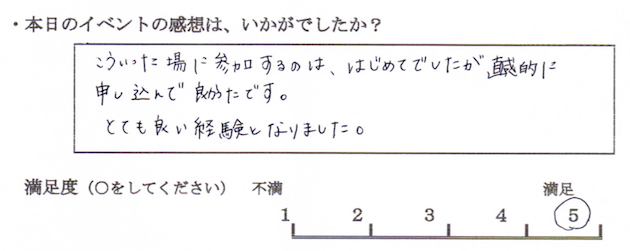 ・本日のイベントの感想は、いかがでしたか？
こういった場に参加するのは、はじめてでしたが直感的に
申し込んで良かったです。
とても良い経験となりました。
満足度（○をしてください） 不満 満足
1 2 3 4 5